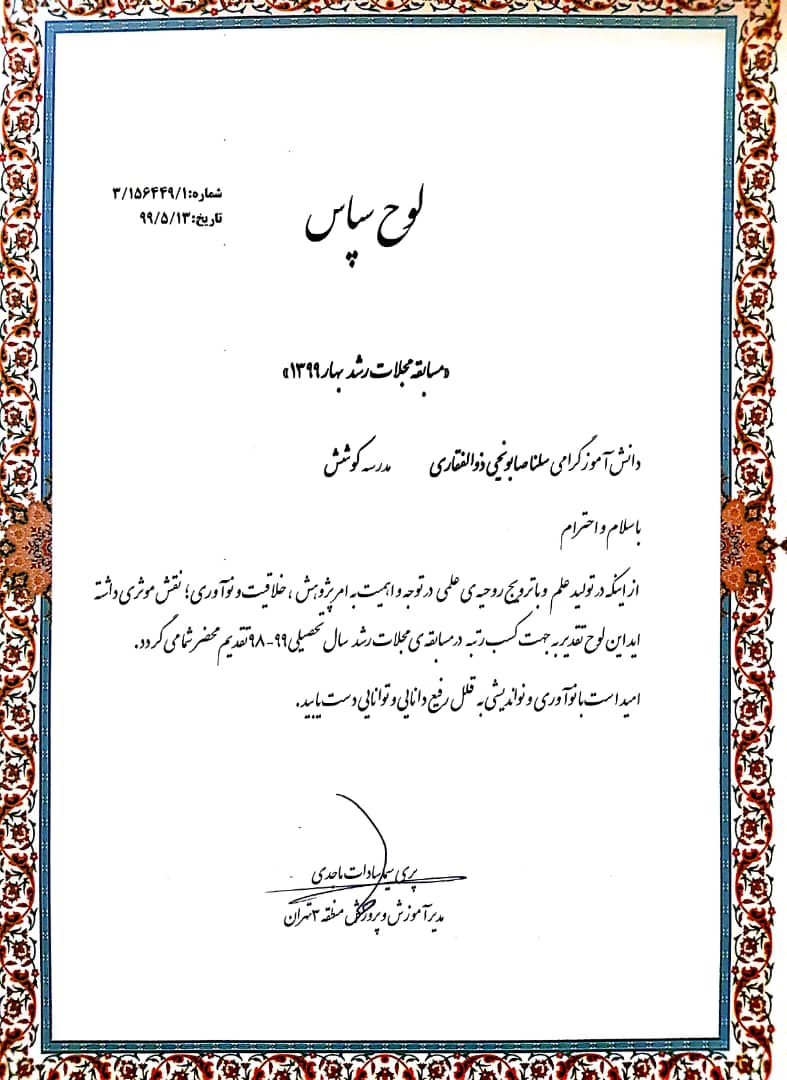 شماره:۳/۱۵۶۴۴۹/۱
تاریخ:۹۹/۵/۱۳
لوح سپاس
«مسابقه مجلات رشد بهار ۱۳۹۹»
دانش آموز گرامی سلنا صابونچی ذوالفقاری مدرسه کوشش
با سلام و احترام
از اینکه در تولید علم و با ترویج روحیه ی علمی در توجه و اهمیت به امر پژوهش ، خلاقیت و نوآوری ؛ نقش موثری داشته
اید این لوح تقدیر به جهت کسب رتبه در مسابقه ی مجلات رشد سال تحصیلی ۹۹-۹۸ تقدیم محضر شما می گردد.
امید است با نوآوری و نواندیشی به قلل رفیع دانایی و توانایی دست یابید.
پری سیما سادات ماجدی
مدیر آموزش و پرورش منطقه ۳ تهران